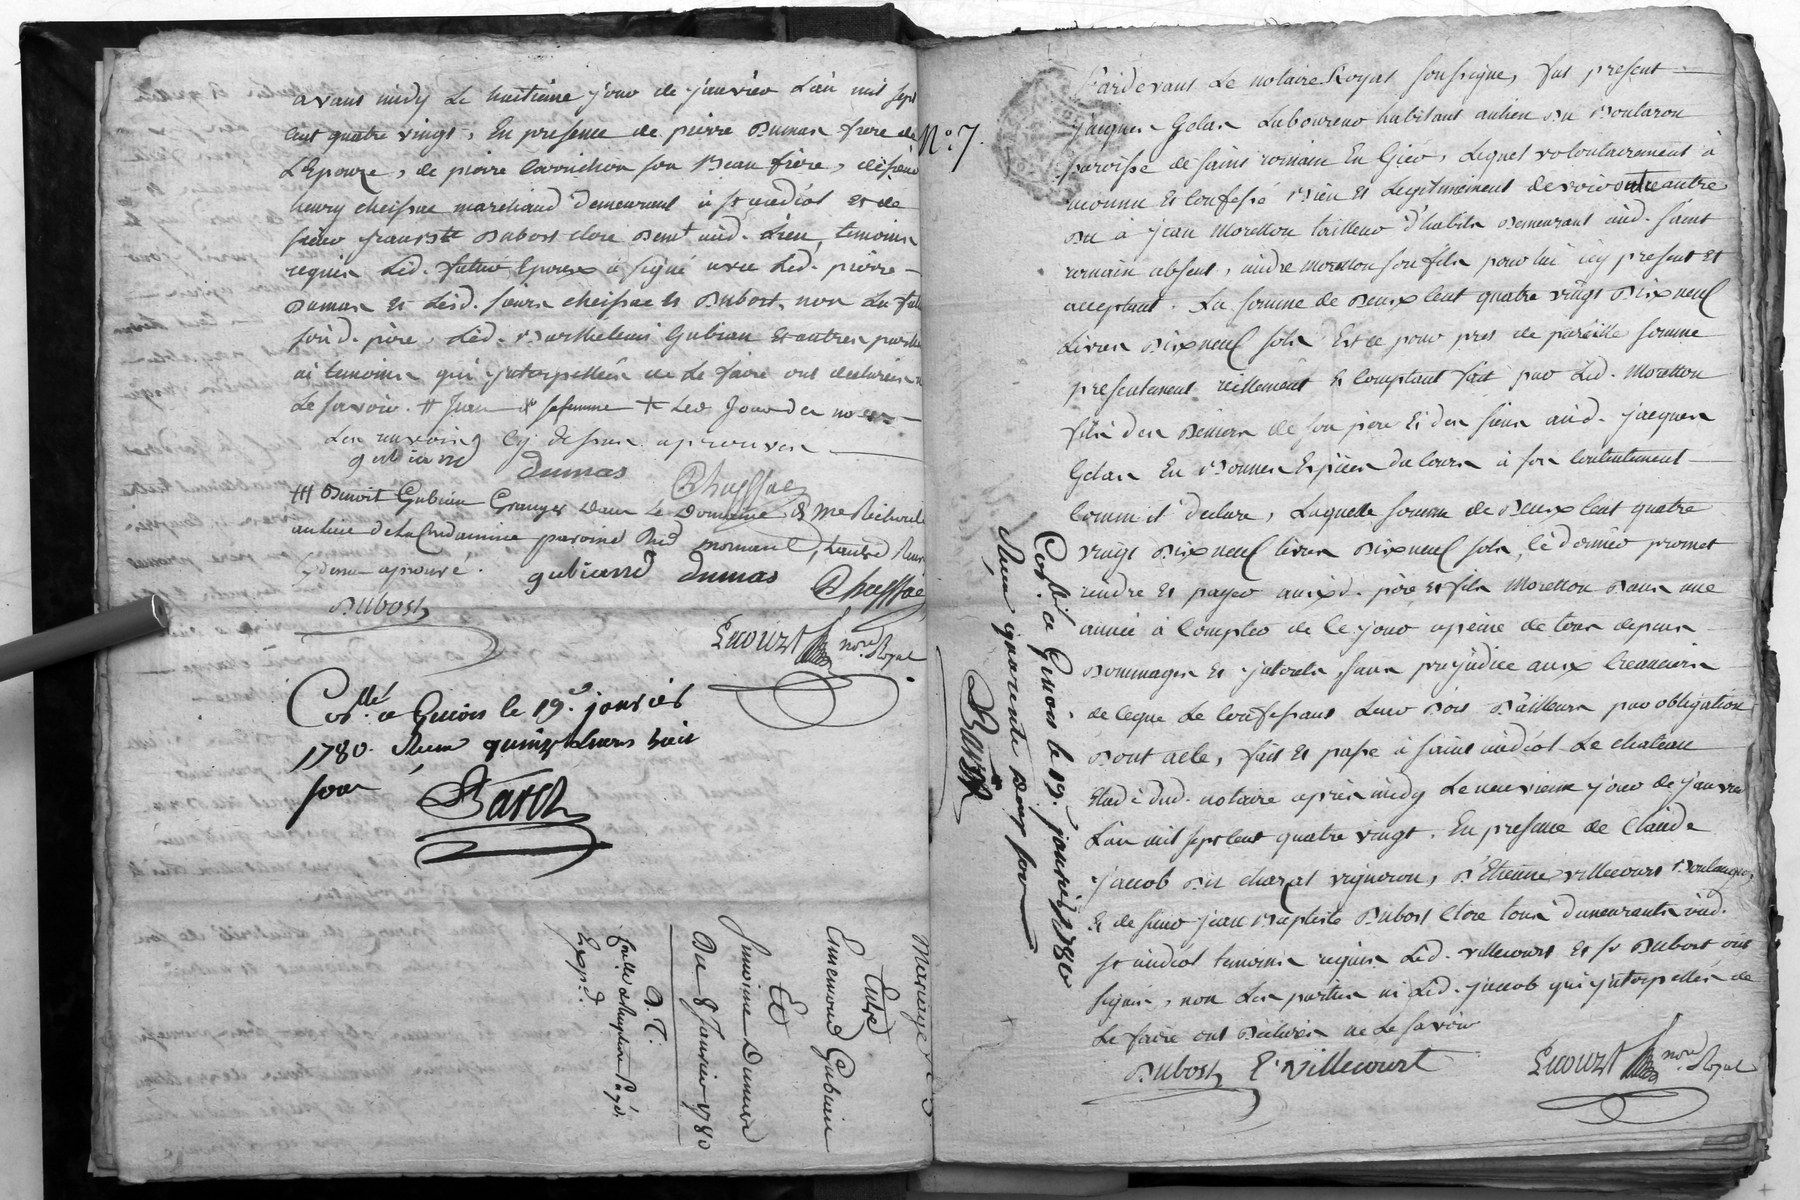 avant midy le huitieme jour de janvier l'an mil sept
cent quatre vingt, En presence de pierre Dumas frere de
L'Epouze, de pierre son Beau frere, de sieur
henry cheissac marchand demeurant à st andéol et de
sieur Dubost clerc Demt aud. Lieu, temoins
requis Led. futur Epoux à signé avec Led. pierre
Dumas et Lesd. sieurs cheissac et Dubost, non La future
sond. père, Led. Barthelemi Gubian Et autres parties
ni temoins qui jnterpellés de le faire ont declarés ne
le savoir. # Jean sa femme + Les jour des noces
Les renvoins cy dessus aprouvés
gubiand Dumas Cheyssac
Benoit Gubian Granger Dans Le Domaine de Me
paroisse Dud mornant, L'autre Renvoi
cy dessus aprouvé. gubiand Dumas Cheyssac
Dubost
nore Royal
Collé a Givors le 19e janvier
1780. Reçu quinze livres huit
sous
Mariage
Entre
Ennemond Gubian
Et
Simonne Dumas
Du 8 Janvier 1780
a. T.
Expd.
No. 7.
Pardevant Le notaire Royal soussigné, fut present
jacques Golas Laboureur habitant au lieu Du Boutaron
paroisse de saint romain En Gier, Lequel volontairement à
reconnu et confessé Bien et Legitimement devoir outre autre
Du à jean Moretton tailleur d'habits Demeurant aud. saint
romain absent, andre Moretton son fils pour lui icy present et
acceptant. La somme de Deux Cent quatre vingt Dix neuf
Livres Dix neuf sols Et ce pour pret de pareille somme
presentement réellement et comptant fait par Led. Moretton
fils des Deniers de son père et des siens aud. jacques
Golas En Bonnes Espèces du cours à son contentement
comm'il declare, Laquelle somme de Deux Cent quatre
vingt Dix neuf livres Dix neuf sols, le dernier promet
rendre et payer auxd. père et fils Moretton Dans une
année à compter de ce jour apeine de tous depens
Dommages et jnterets, sans prejudice aux creanciers
de ceque Le confessant Leur Doit D'ailleurs par obligation
Dont acte, fait et passé à saint andéol Le chateau
Etude Dud. notaire après midy Le neuvieme jour de janvier
L'an mil sept cent quatre vingt. En presence de Claude
jacob Dit charpt vigneron, D'Etienne villecourt Boulanger,
Et de sieur jean Baptiste Dubost Clerc tous demeurants aud.
st andéol temoins requis Led. villecourt et sr Dubost ont
signés, non Les parties ni Led. jacob qui jnterpellés de
Le faire ont Déclarés ne Le savoir
Dubost E. Villecourt nore Royal
Collé a Givors le 19. janvier 1780
Reçu quarente Deux sous